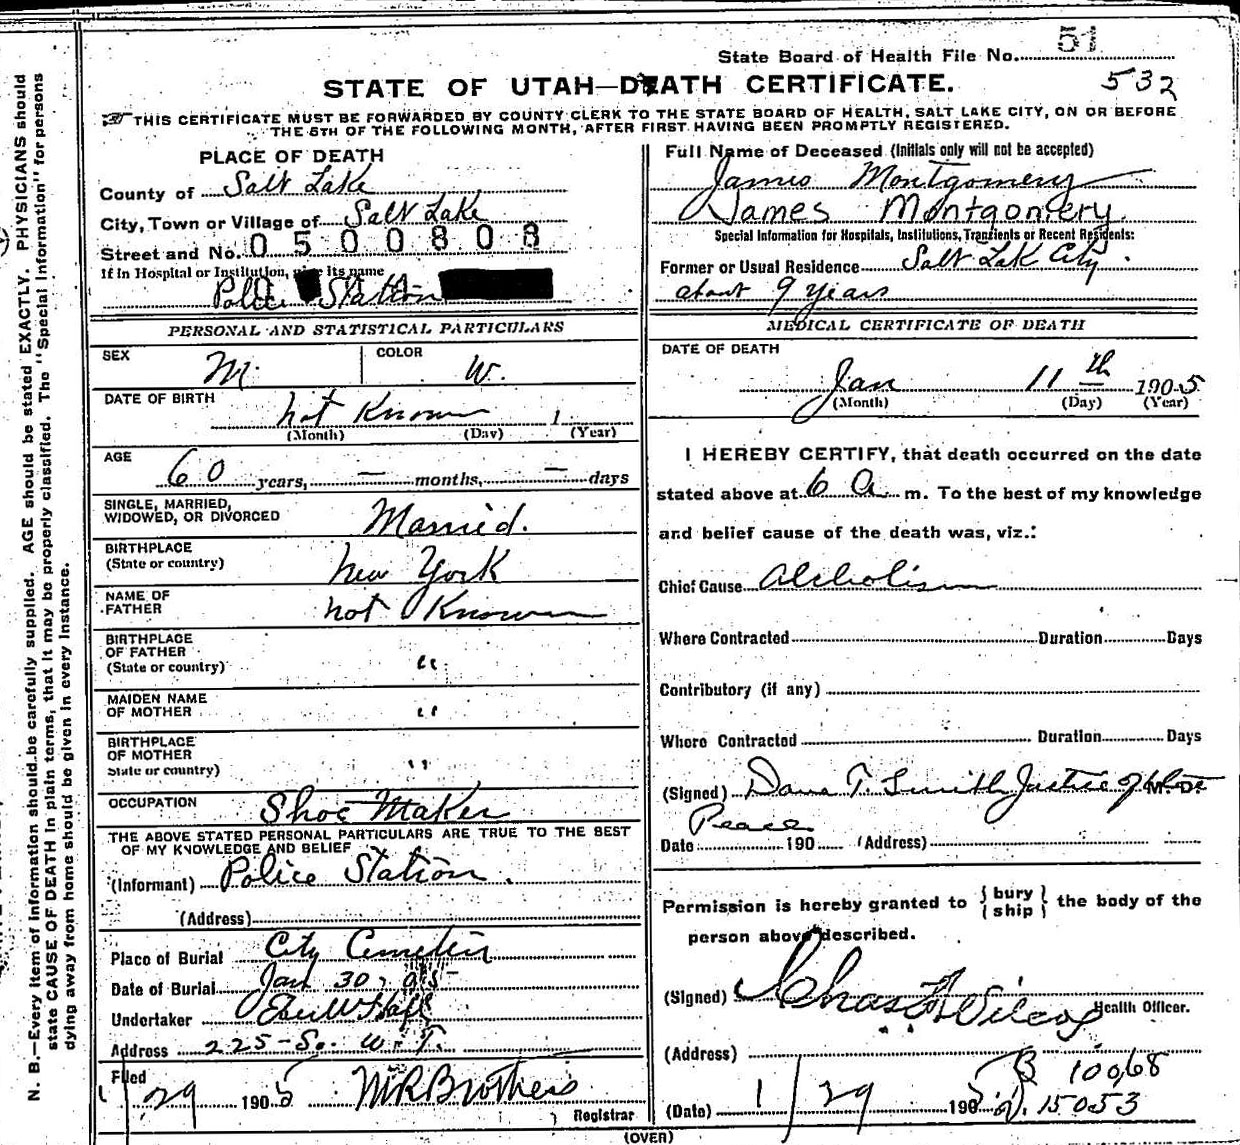 State Board of Health File No. 51
532
STATE OF UTAH—DEATH CERTIFICATE.
THIS CERTIFICATE MUST BE FORWARDED BY COUNTY CLERK TO THE STATE BOARD OF HEALTH, SALT LAKE CITY, ON OR BEFORE
THE 5TH OF THE FOLLOWING MONTH, AFTER FIRST HAVING BEEN PROMPTLY REGISTERED.
PLACE OF DEATH
County of Salt Lake
City, Town or Village of Salt Lake
Street and No. 0500808
If in Hospital or Institution, give its name
Police Station
Full Name of Deceased (Initials only will not be accepted)
James Montgomery
James Montgomery
Special Information for Hospitals, Institutions, Tranzients or Recent Residents:
Former or Usual Residence Salt Lak City.
about 9 years
PERSONAL AND STATISTICAL PARTICULARS
SEX M. COLOR W.
DATE OF BIRTH
not Known 1
(Month) (Day) (Year)
AGE
60 years, — months, — days
SINGLE, MARRIED,
WIDOWED, OR DIVORCED Married.
BIRTHPLACE
(State or country) New York
NAME OF
FATHER not Known
BIRTHPLACE
OF FATHER
(State or country) "
MAIDEN NAME
OF MOTHER "
BIRTHPLACE
OF MOTHER
State or country) "
OCCUPATION Shoe Maker
THE ABOVE STATED PERSONAL PARTICULARS ARE TRUE TO THE BEST
OF MY KNOWLEDGE AND BELIEF
(Informant) Police Station.
(Address)
Place of Burial City Cemetery
Date of Burial Jan 30, 05
Undertaker Eber W Hall
Address 225-So. W. T.
Filed
1/29 1905 MR Brothers
Registrar
MEDICAL CERTIFICATE OF DEATH
DATE OF DEATH
Jan 11th 1905
(Month) (Day) (Year)
I HEREBY CERTIFY, that death occurred on the date
stated above at 6 A m. To the best of my knowledge
and belief cause of the death was, viz.:
Chief Cause Alcholism
Where Contracted Duration Days
Contributory (if any)
Where Contracted Duration Days
(Signed) Dana T. Smith Justice of the
Peace
Date 190 (Address)
Permission is hereby granted to { bury } the body of the
{ ship }
person above described.
(Signed) Chas F Wilcox Health Officer.
(Address)
B 10068
(Date) 1/29 1905 D. 15053
(OVER)
N. B.—Every item of information should be carefully supplied. AGE should be stated EXACTLY. PHYSICIANS should
state CAUSE OF DEATH in plain terms, that it may be properly classified. The "Special Information" for persons
dying away from home should be given in every instance.